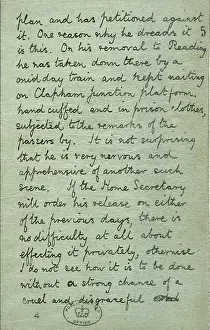 plan and has petitioned against
it. One reason why he dreads it 5
is this. On his removal to Reading
he was taken down there by a
midday train and kept waiting
on Clapham Junction platform,
handcuffed and in prison clothes,
subjected to the remarks of the
passers by. It is not surprising
that he is very nervous and
apprehensive of another such
scene. If the Home Secretary
will order his release on either
of the previous days, there is
no difficulty at all about
effecting it privately, otherwise
I do not see how it is to be done
without a strong chance of a
cruel and disgraceful
OFFICE